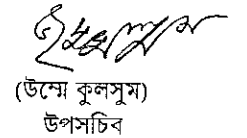 (উম্মে কুলসুম)
উপসচিব